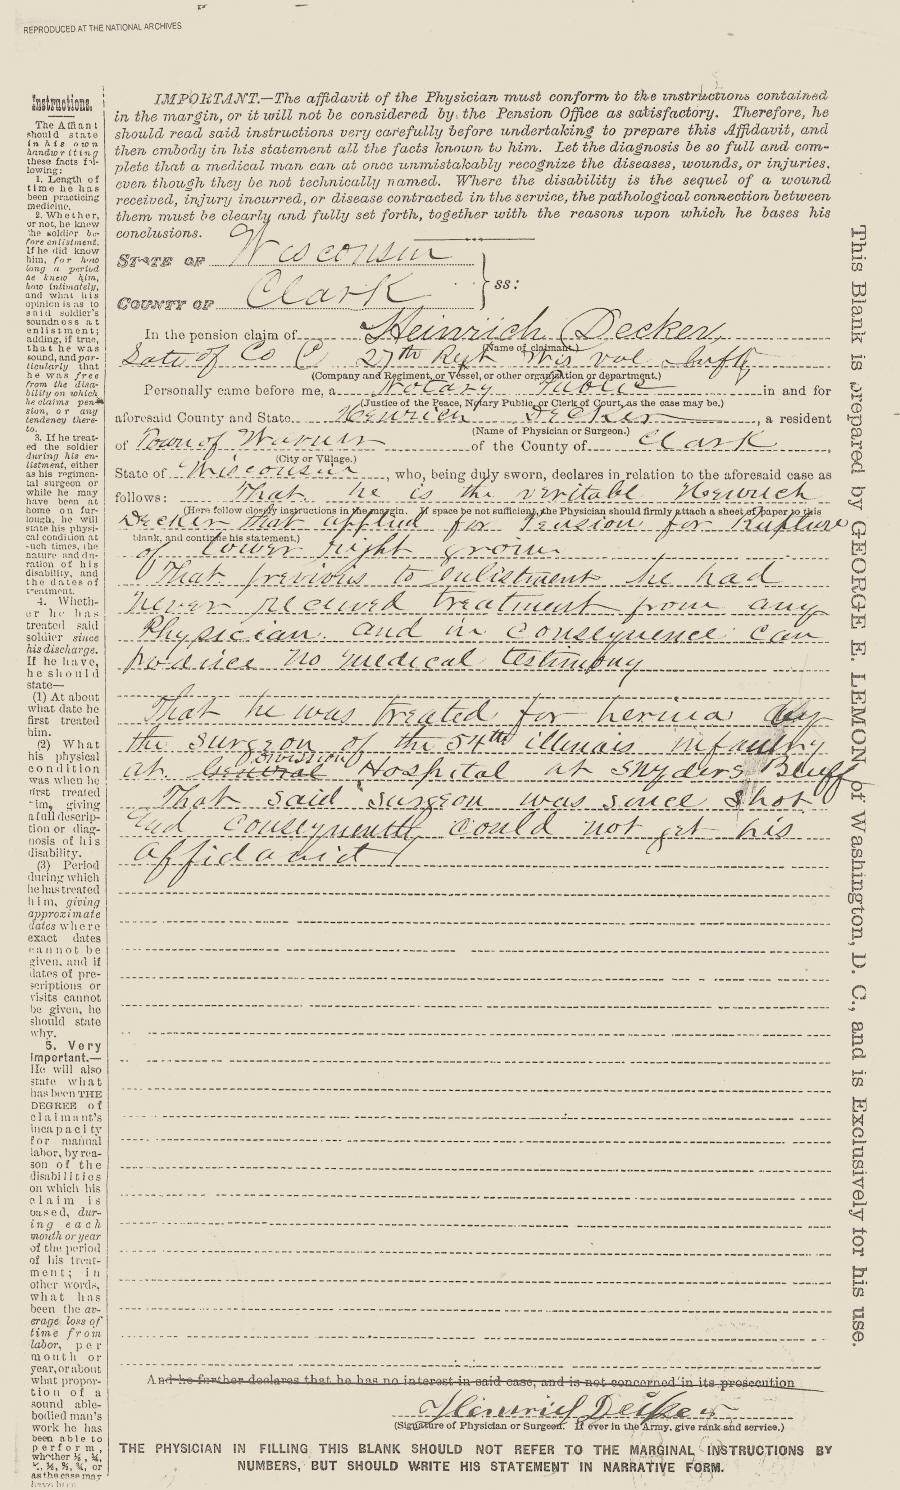 REPRODUCED AT THE NATIONAL ARCHIVES
Instructions.
The Affiant
should state
in his own
handwriting
these facts fol-
lowing:
1. Length of
time he has
been practicing
medicine.
2. Whether,
or not, he knew
the soldier be-
fore enlistment.
If he did know
him, for how
long a period
he knew him,
how intimately,
and what his
opinion is as to
said soldier's
soundness at
enlistment;
adding, if true,
that he was
sound, and par-
ticularly that
he was free
from the disa-
bility on which
he claims pen-
sion, or any
tendency there-
to.
3. If he treat-
ed the soldier
during his en-
listment, either
as his regimen-
tal surgeon or
while he may
have been at
home on fur-
lough, he will
state his physi-
cal condition at
such times, the
nature and du-
ration of his
disability, and
the dates of
treatment.
4. Wheth-
er he has
treated said
soldier since
his discharge.
If he have,
he should
state—
(1) At about
what date he
first treated
him.
(2) What
his physical
condition
was when he
first treated
him, giving
a full descrip-
tion or diag-
nosis of his
disability.
(3) Period
during which
he has treated
him, giving
approximate
dates where
exact dates
cannot be
given, and if
dates of pre-
scriptions or
visits cannot
be given, he
should state
why.
5. Very
important.—
He will also
state what
has been THE
DEGREE of
claimant's
incapacity
for manual
labor, by rea-
son of the
disabilities
on which his
claim is
based, dur-
ing each
month or year
of the period
of his treat-
ment; in
other words,
what has
been the av-
erage loss of
time from
labor, per
month or
year, or about
what propor-
tion of a
sound able-
bodied man's
work he has
been able to
perform,
whether ½, ¼,
or
as the case may
have been
IMPORTANT.—The affidavit of the Physician must conform to the instructions contained
in the margin, or it will not be considered by the Pension Office as satisfactory. Therefore, he
should read said instructions very carefully before undertaking to prepare this Affidavit, and
then embody in his statement all the facts known to him. Let the diagnosis be so full and com-
plete that a medical man can at once unmistakably recognize the diseases, wounds, or injuries,
even though they be not technically named. Where the disability is the sequel of a wound
received, injury incurred, or disease contracted in the service, the pathological connection between
them must be clearly and fully set forth, together with the reasons upon which he bases his
conclusions.
STATE OF Wisconsin
ss:
COUNTY OF Clark
In the pension claim of Heinrich Decker,
(Name of claimant.)
Late of Co 27th Regt Wis vol Infty
(Company and Regiment, or Vessel, or other organization or department.)
Personally came before me, a Notary Public in and for
(Justice of the Peace, Notary Public, or Clerk of Court, as the case may be.)
aforesaid County and State, Henrich Decker, a resident
(Name of Physician or Surgeon.)
of Town of Warner of the County of Clark,
(City or Village.)
State of Wisconsin, who, being duly sworn, declares in relation to the aforesaid case as
follows: That he is the veritable Henrich
(Here follow closely instructions in the margin. If space be not sufficient, the Physician should firmly attach a sheet of paper to this
Decker that applied for Pension for Rupture
blank, and continue his statement.)
of lower right groin
That previous to enlistment he had
never received treatment from any
Physician and in consequence can
produce no medical testimony
That he was treated for hernia by
the surgeon of the 54th illinais infantry
Division
at General Hospital at Snyders Bluff
That said surgeon was since shot
and consequently could not get his
affidavid
And he further declares that he has no interest in said case, and is not concerned in its prosecution
Heinrich Decker
(Signature of Physician or Surgeon. If ever in the Army, give rank and service.)
THE PHYSICIAN IN FILLING THIS BLANK SHOULD NOT REFER TO THE MARGINAL INSTRUCTIONS BY
NUMBERS, BUT SHOULD WRITE HIS STATEMENT IN NARRATIVE FORM.
This Blank is prepared by GEORGE E. LEMON, of Washington, D. C., and is Exclusively for his use.